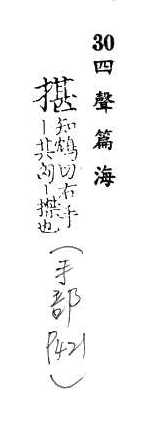 30 四聲篇海
揕
知鴆切右手
－其胸－也
(手部 P421)